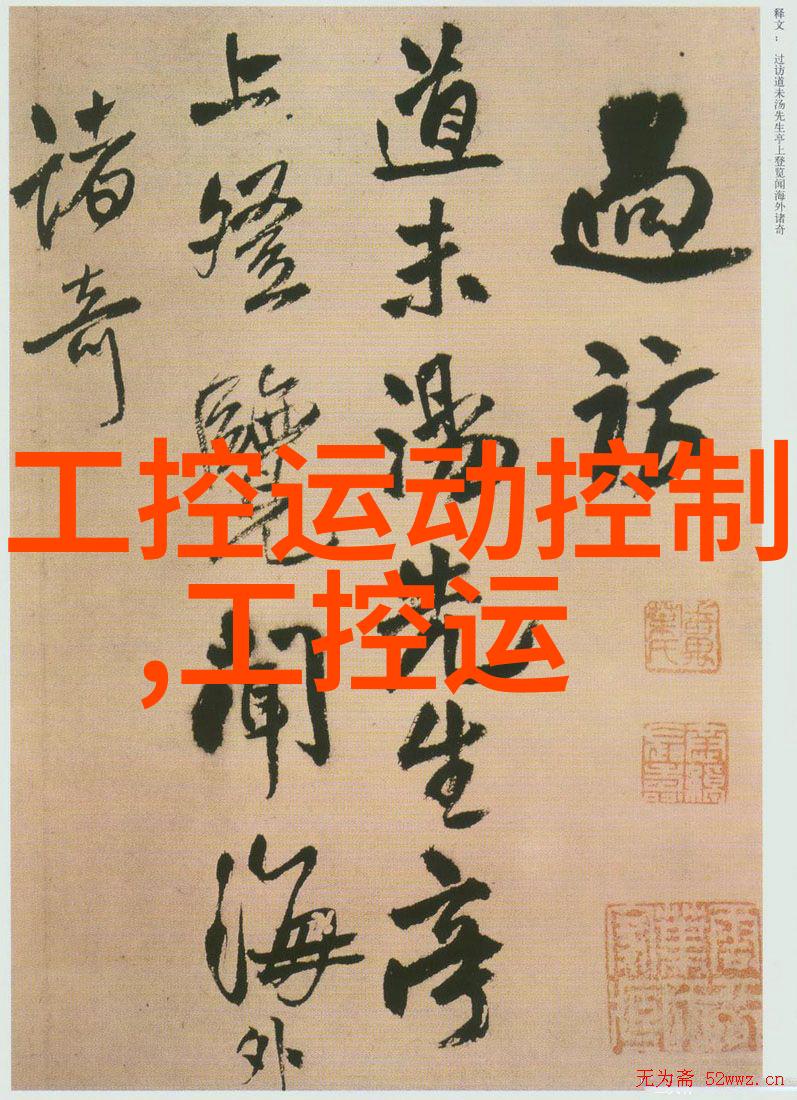 释文：过访道未汤先生亭上登览闻海外诸奇
過訪
道未湯先生亭
上登覽聞海外
诸奇
工控运动控制
,工控运
无为斋 52wwz.cn